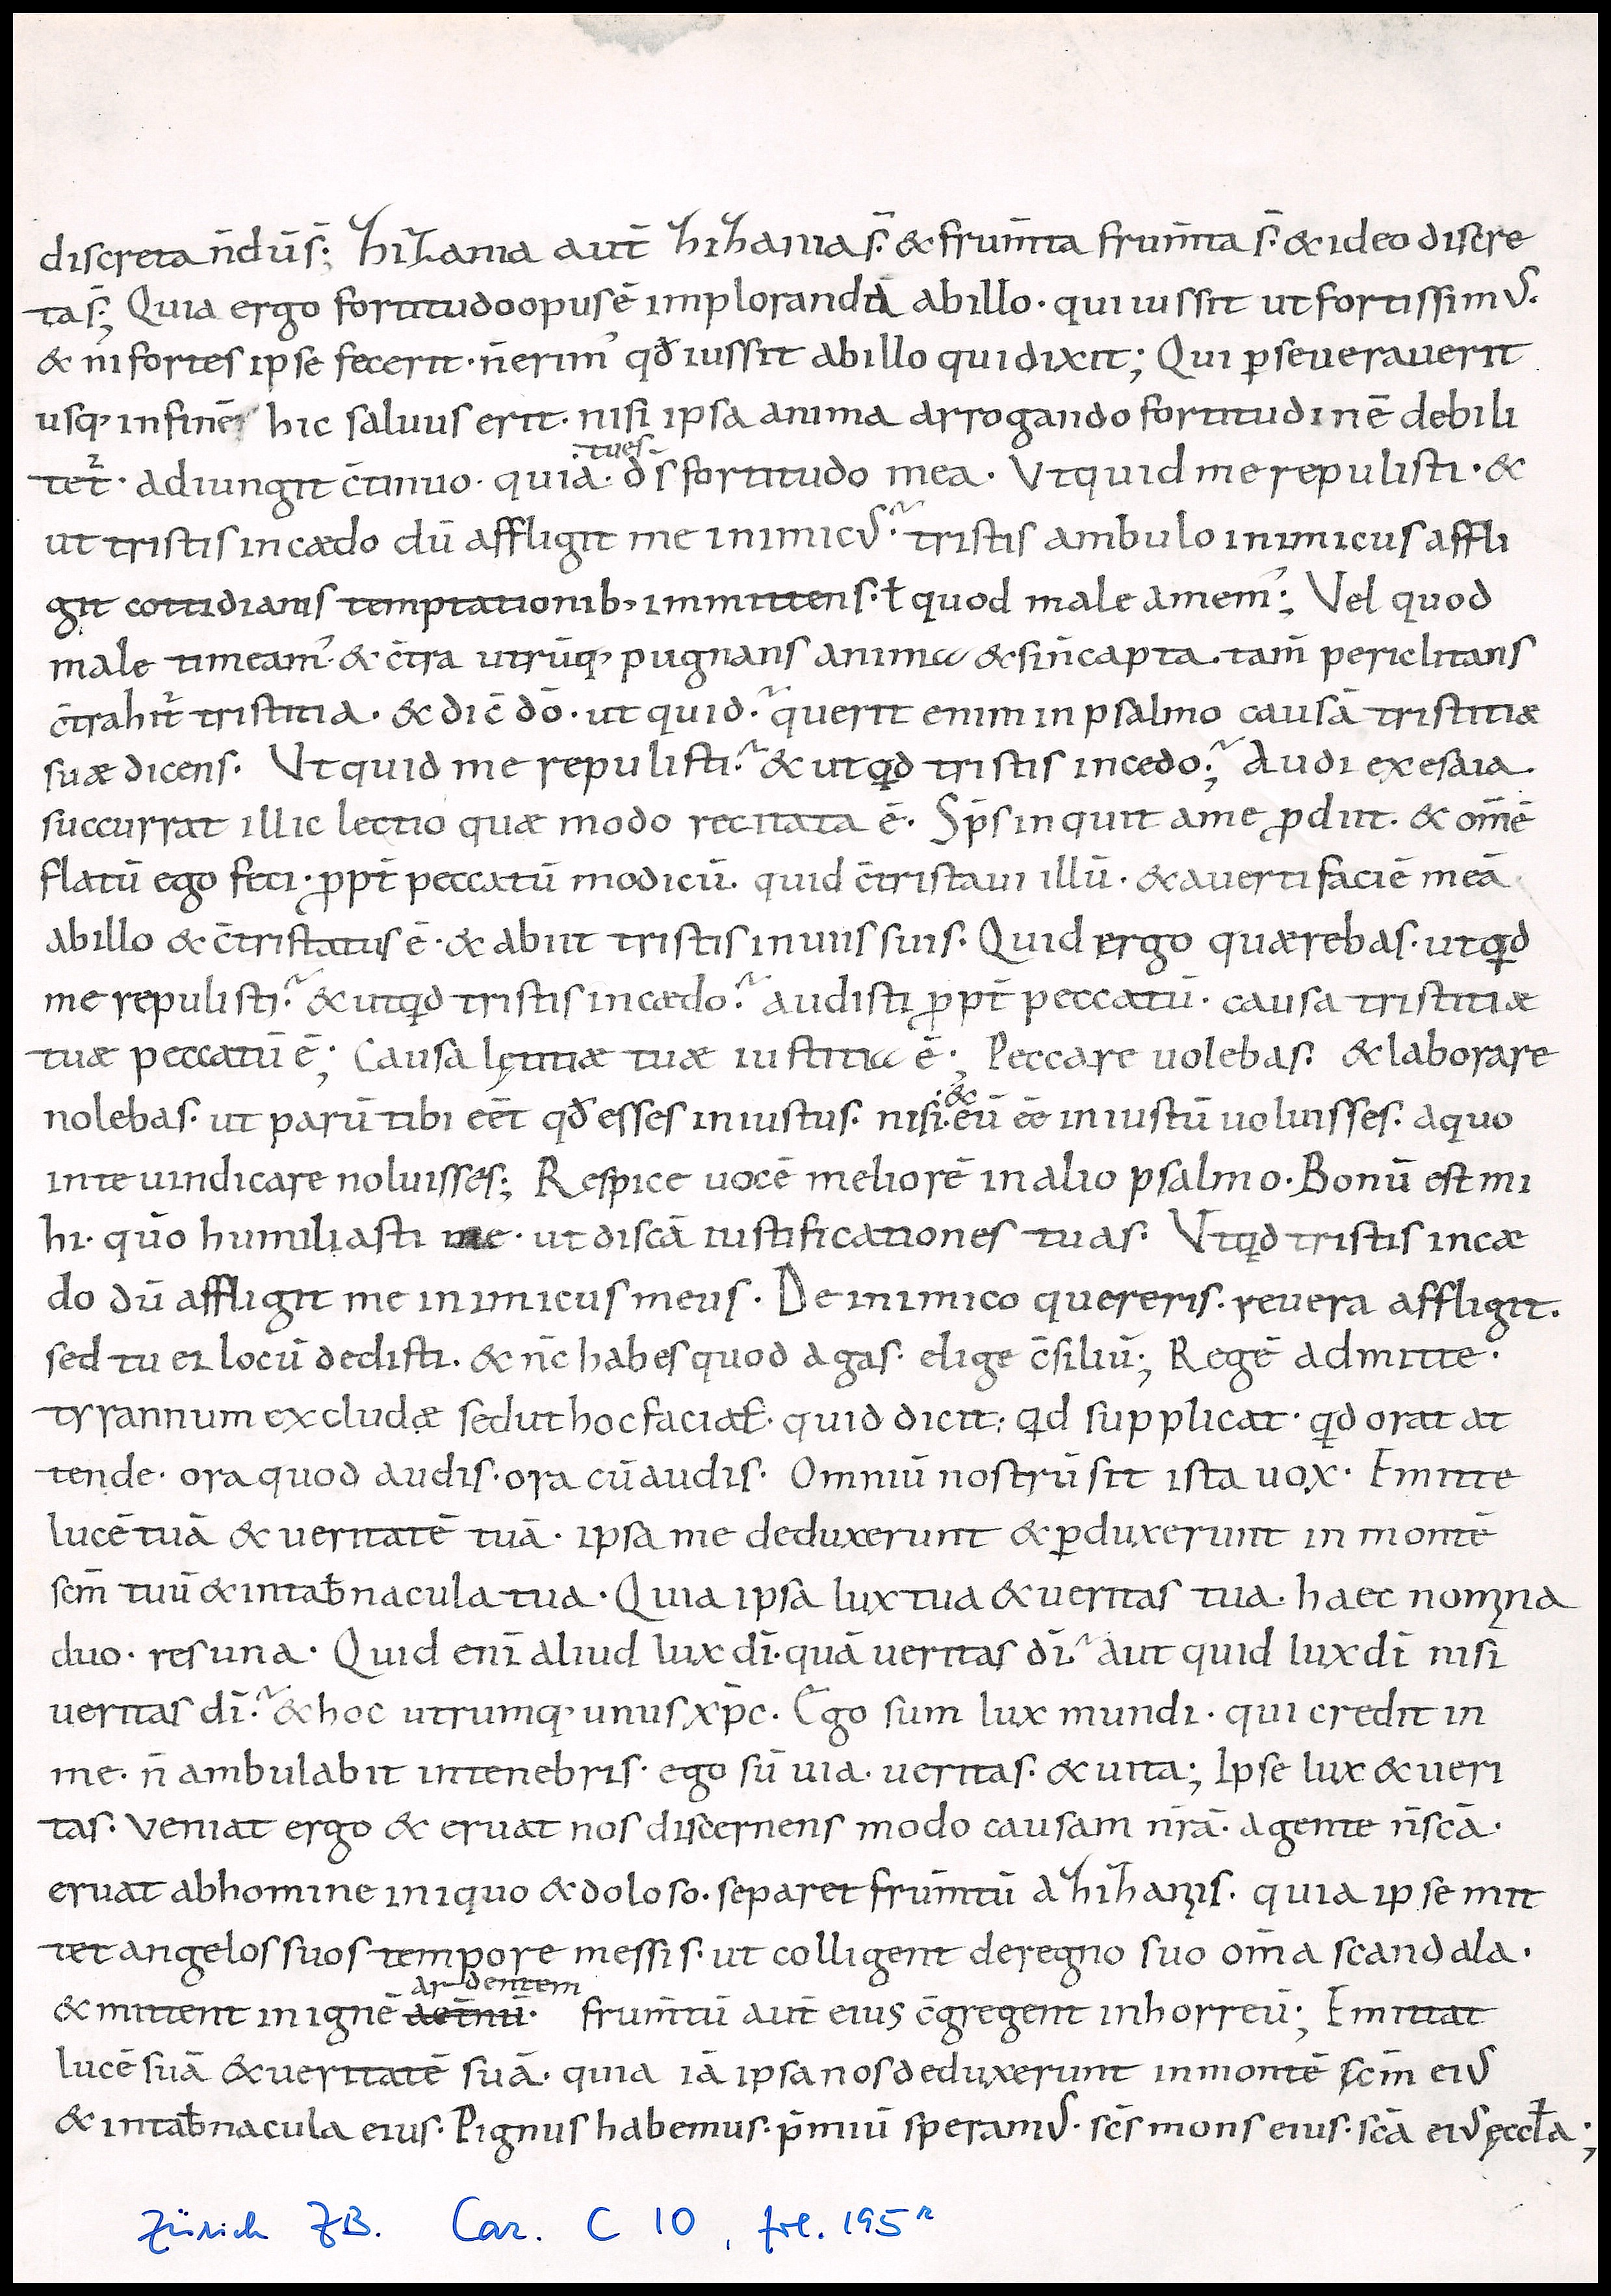 discreta n̄dū s̄; hihania aut̄ hihania s̄. & frum̄ta frum̄ta s̄. & ideo discre
ta s̄; Quia ergo fortitudo opus ē implorandā abillo. qui iussit ut fortissim᾽.
& ni fortes ipse fecerit. n̄ erim᾽ qđ iussit abillo qui dixit; Qui ꝑseuerauerit
usq, infinē hic saluus erit. nisi ipsa anima arrogando fortitudinē debili
tet̄. adiungit c̄tinuo. quia. ·tues· d̄s fortitudo mea. Vtquid me repulisti. &
ut tristis incædo dū affligit me inimic᾽. tristis ambulo inimicus affli
git cottidianis temptationib, inmittens. ł quod male amem᾽; Vel quod
male timeam᾽. & c̄tra utrūq, pugnans anima & si n̄ capta. tam̄ periclitans
c̄trahit̄ tristitia. & dic̄ dō. ut quid. querit enim in psalmo causā tristitiæ
suæ dicens. Vtquid me repulisti. & utqd tristis incedo; Audi ex esaia.
succurrat illic lectio quæ modo recitata ē. Sp̄s inquit ame ꝓdiit. & om̄ē
flatū ego feci. ꝓpt̄ peccatū modicū. quid c̄tristaui illū. & auerti faciē meā
abillo & c̄tristatus ē. & abiit tristis inuiis suis. Quid ergo quærebas. utqd
me repulisti. & utqd tristis incædo. audisti ꝓpt̄ peccatū. causa tristitiæ
tuæ peccatū ē; Causa lętitiæ tuæ iustitia ē; Peccare uolebas. & laborare
nolebas. ut parū tibi eēt qđ esses iniustus. nisi .&. eū eē iniustū uoluisses. aquo
inte uindicare noluisses; Respice uocē meliorē in alio psalmo. Bonū est mi
hi. quō humiliasti me. ut discā iustificationes tuas. Vtqd tristis incæ
do dū affligit me inimicus meus. De inimico quereris. reuera affligit.
sed tu ei locū dedisti. & n̄c habes quod agas. elige c̄siliū; Regē admitte.
tyrannum excludæ sed ut hoc faciat. quid dicit. qd supplicat. qd orat at
tende. ora quod audis. ora cū audis. Omniū nostrū sit ista uox. Emitte
lucē tuā & ueritatē tuā. ipsa me deduxerunt & ꝑduxerunt in montē
scm̄ tuū & intab̄nacula tua. Quia ipsa lux tua & ueritas tua. haec nomina
duo. res una. Quid enī aliud lux dī. quā ueritas dī aut quid lux dī nisi
ueritas dī. & hoc utrumq, unus xp̄c. Ego sum lux mundi. qui credit in
me. n̄ ambulabit intenebris. ego sū uia. ueritas. & uita; Ipse lux & ueri
tas. Veniat ergo & eruat nos discernens modo causam nrā. agente n̄ scā.
eruat abhomine iniquo & doloso. separet frum̄tū a hihaniis. quia ipse mit
tet angelos suos tempore messis. ut colligent deregno suo om̄a scandala.
& mittent in ignē aet̄nū. ardentem frum̄tū aut̄ eius c̄gregent inhorreū; Emittat
lucē suā & ueritatē suā. quia iā ipsa nos deduxerunt inmontē scm̄ ei᾽
& intab̄nacula eius. Pignus habemus. p̄miū speram᾽. scs̄ mons eius. scā ei᾽ ęccła;
Zürich ZB. Car. C 10, fol. 195r